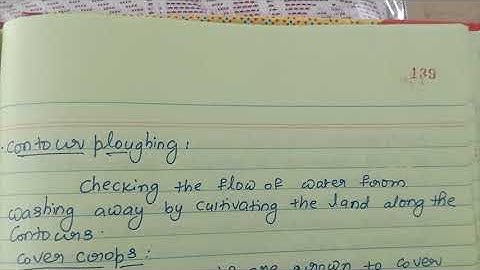 139
contour ploughing:
Checking the flow of water from
washing away by cultivating the land along the
Contours.
Cover crops:
are grown to cover